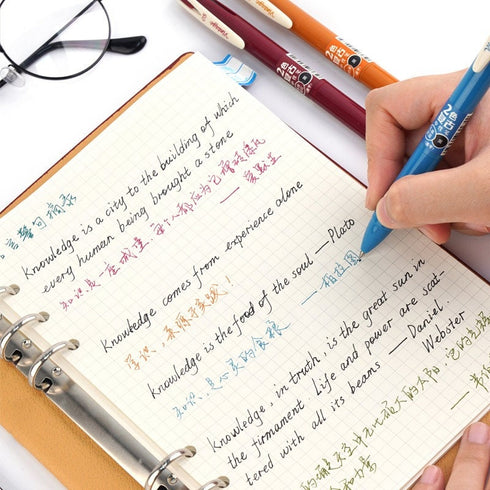 言警句摘录
Knowledge is a city to the building of which
every human being brought a stone
知识是一座城堡,每个人都应为它增砖添瓦
——爱默生
Knowledge comes from experience alone
学识,来源于实践!
Knowledge is the food of the soul — Plato
知识,是心灵的食粮 ——柏拉图
Knowledge, in truth, is the great sun in
the firmament. Life and power are scat-
tered with all its beams — Daniel.
Webster
的太阳,它的
和力量
2色
2色